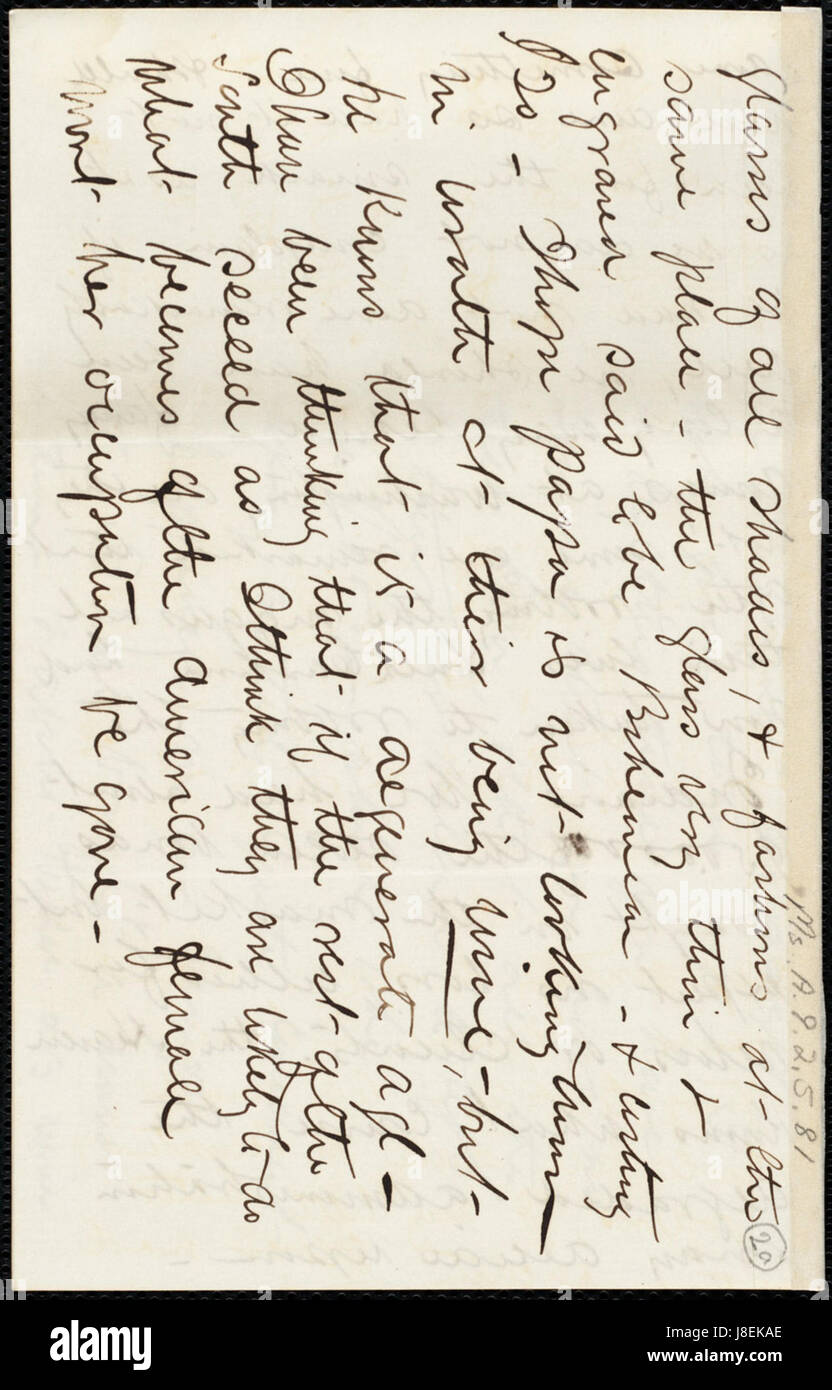 glasses of all shades, & of fashions at the
same place - the glass very thin &
engraved said to be Bohemian - & costing
£30 - I hope Papa is not looking down
in wrath at their being wine, - but -
he knows that it is a degenerate age -
I have been thinking that if the rest of the
South seceed as I think they are likely to do
what becomes of the American female
wont her occupation be gone -
Ms. A. 9. 2. 5. 81
20
alamy
alamy
Image ID: J8EKAE
www.alamy.com